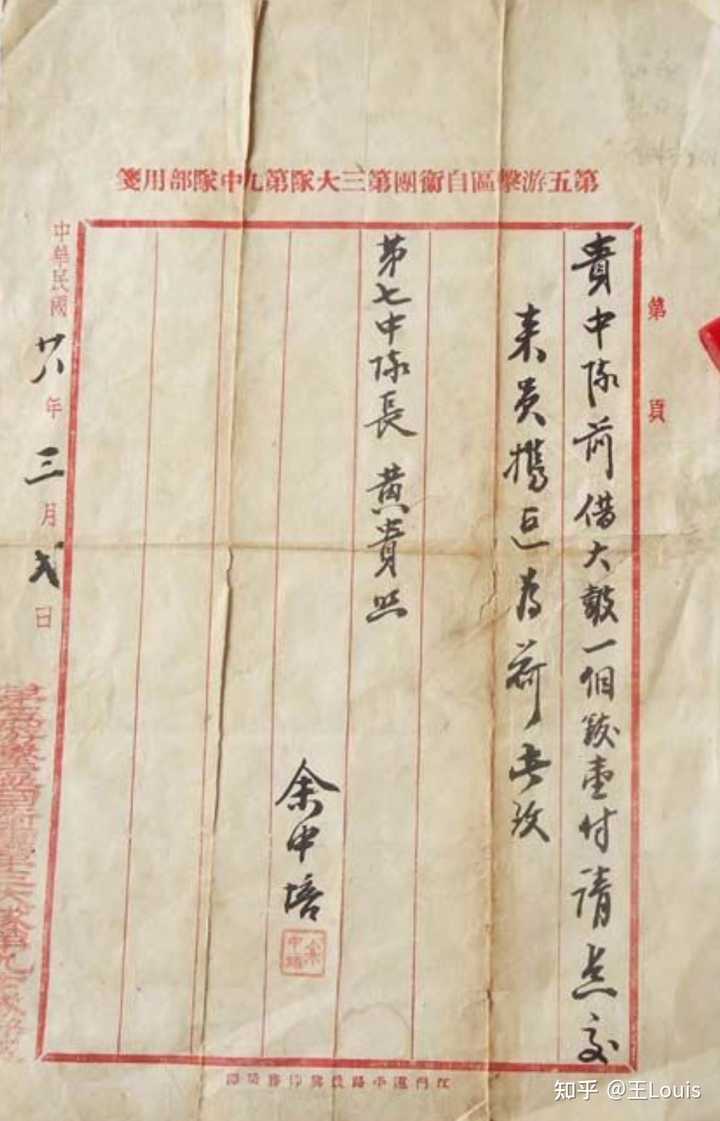 第五游擊區自衛團第三大隊第九中隊部用箋
第 頁
貴中隊前借大鼓一個鈸壹付請点交
来員携返為荷此致
第七中隊長 黃貴照
余中培
余中培
中華民國廿八年三月弍日
知乎 @王Louis